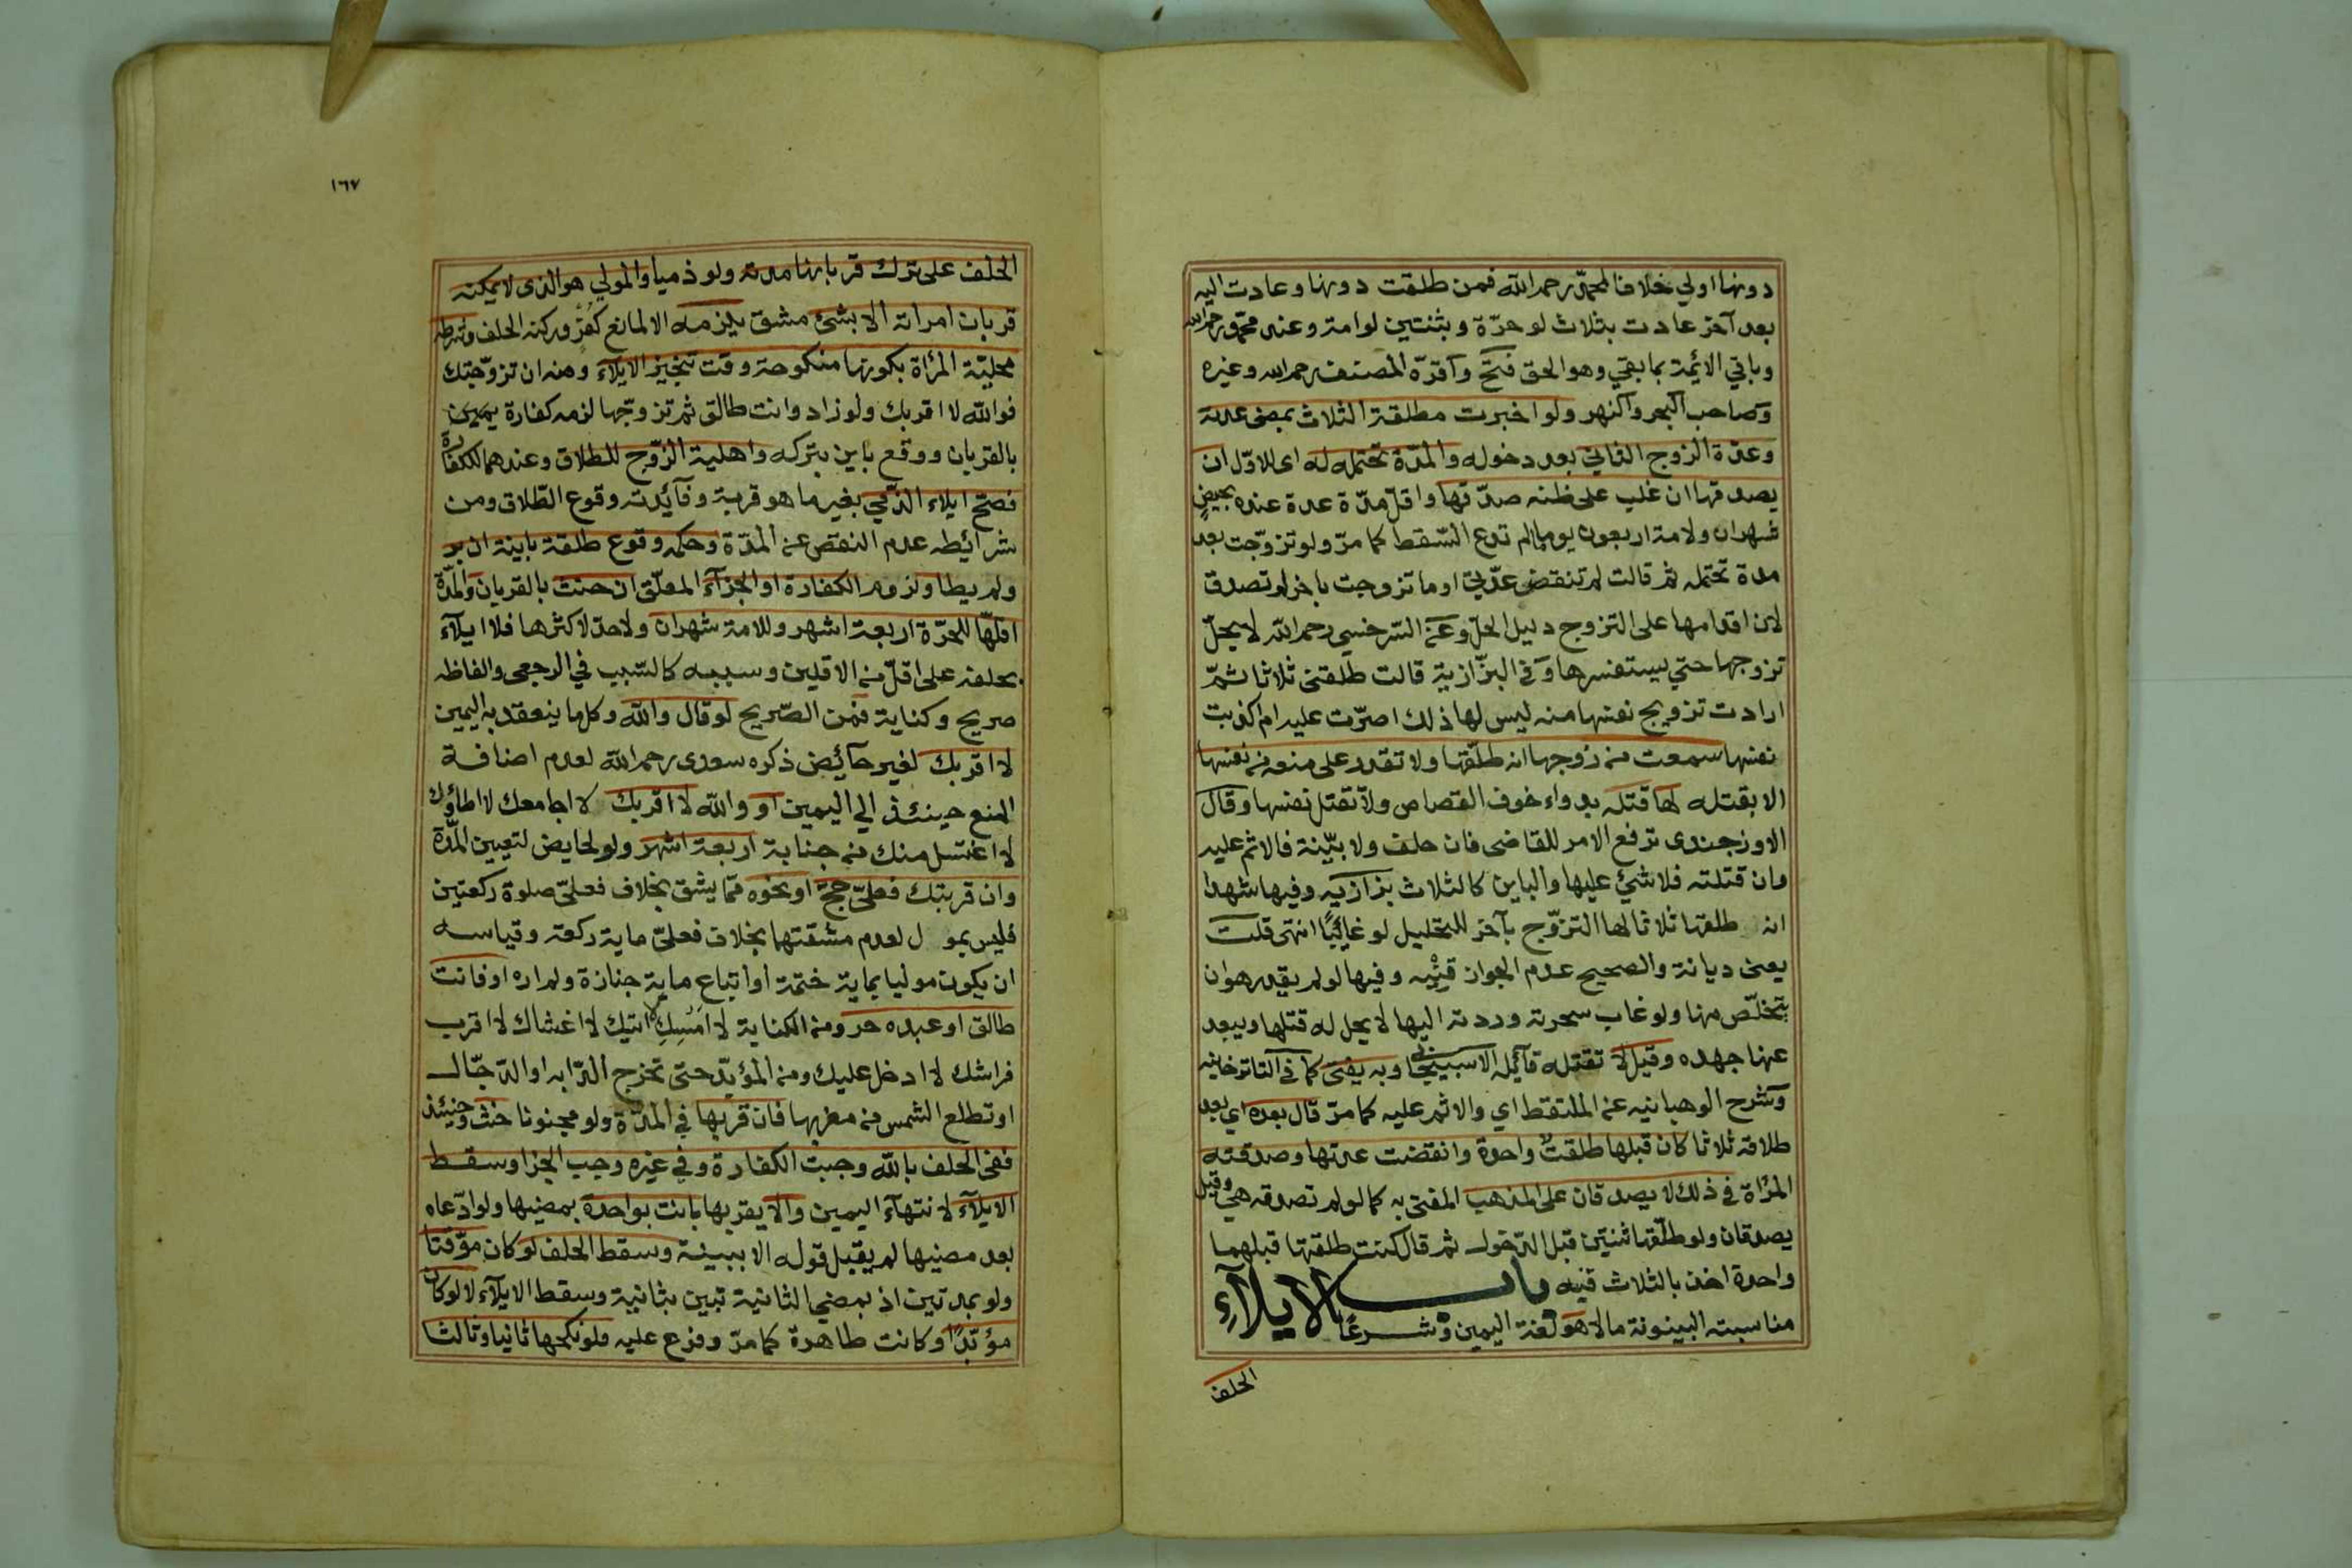 دونها اولي خلافا لمحمد رحمه الله فمن طلقت دونها وعادت اليه
بعد آخر عادت بثلاث لو حرّة وبثنتين لو امة وعند محمد رحمه الله
وباقي الائمة بما بقي وهو الحق فتح وآقرّه المصنف رحمه الله وغيره
وصاحب البحر والنهر ولو اخبرت مطلقة الثلاث بمضى عدته
وعدة الزوج الثاني بعد دخوله والمدّة تحتمله له اى للاوّل ان
يصدقها ان غلب على ظنه صدقها واقلّ مدّة عدة عنده بحيض
شهران ولامة اربعون يوما مالم تدع السّقط كما مرّ ولو تزوّجت بعد
مدة تحتمله ثم قالت لم تنقض عدّتي او ما تزوجت باخر لم تصدق
لان اقدامها على التزوج دليل الحلّ وعن السّرخسي رحمه الله لا يحلّ
تزوجها حتي يستفسرها وفي البزّازية قالت طلقنى ثلاثا ثمّ
ارادت تزويج نفسها منه ليس لها ذلك اصرّت عليه ام اكذبت
نفسها سمعت من زوجها انه طلّقها ولا تقدر على منعه من نفسها
الا بقتله لها قتله بدواء خوف القصاص ولا تقتل نفسها وقال
الاوزجندى ترفع الامر للقاضى فان حلف ولا بيّنة فالاثم عليه
وان قتلته فلا شئ عليها والباين كالثلاث بزازيه وفيها شهدا
انه طلقها ثلاثا لها التزوّج بآخر للتحليل لو غائبًا انتهى قلت
يعنى ديانة والصحيح عدم الجواز قنيه وفيها لو لم يقدر هو ان
يتخلّص منها ولو غاب سحرته وردته اليها لا يحل له قتلها ويبعد
عنها جهده وقيل لا تقتله قائله الاسبيجابي وبه يفتى كما في التاترخانيه
وشرح الوهبانيه عن الملتقط اي والاثم عليه كما مرّ قال بعده اي بعد
طلاقه ثلاثا كان قبلها طلقت واحدة وانقضت عدتها وصدقته
المرٔاة في ذلك لا يصدقان على المذهب المفتى به كما لو لم تصدقه هى وقيل
يصدقان ولو طلّقها ثنتين قبل الدّخول ثم قال كنت طلقتها قبلهما
واحدة اخذ بالثلاث قنيه باب الايلآءِ
مناسبته البينونة مالا هو لغة اليمين وشرعًا
الحلف
١٦٧
الحلف على ترك قربانها مدته ولو ذميا والمولي هو الذى لا يمكنه
قربان امراته الا بشئ مشق يلزمه الا لمانع كفر وركنه الحلف وشرطه
محليّة المرٔاة بكونها منكوحة وقت تنجيز الايلآء ومنه ان تزوّجتك
فوالله لا اقربك ولو زاد وانت طالق ثم تزوّجها لزمه كفارة يمين
بالقربان ووقع باين بتركه واهلية الزّوج للطلاق وعندهما للكفارة
فصحّ ايلاء الذّمي بغير ما هو قربة وفآئدته وقوع الطّلاق ومن
شرائطه عدم النقص عن المدّة وحكمه وقوع طلقة باينة ان بر
ولم يطا ولزوم الكفارة او الجزآء المعلّق ان حنث بالقربان والمدّة
اقلّها للحرّة اربعة اشهر وللامة شهران ولا حد لاكثرها فلا ايلآء
بحلفه على اقلّ من الاقلين وسببه كالسّبب في الرجعى والفاظه
صريح وكناية فمن الصّريح لو قال والله وكل ما ينعقد به اليمين
لا اقربك لغير حآئض ذكره سعدى رحمه الله لعدم اضافة
المنع حينئذ الي اليمين او والله لا اقربك لا اجامعك لا اطاؤك
لا اغتسل منك من جنابة اربعة اشهر ولو لحايض لتعيين المدّة
وان قربتك فعليّ حج او نحوه ممّا يشق بخلاف فعليّ صلوة ركعتين
فليس بمول لعدم مشقتهما بخلاف فعليّ ماية ركعة وقياسه
ان يكون موليا بماية ختمة او اتباع ماية جنازة ولم اره او فانت
طالق او عبده حر ومن الكناية لا امسك لا اتيك لا اغشاك لا اقرب
فراشك لا ادخل عليك ومن المؤبّد حتى تخرج الدّابه او الدّجّال
او تطلع الشمس من مغربها فان قربها في المدّة ولو مجنونا حنث وحينئذ
ففى الحلف بالله وجبت الكفارة وفي غيره وجب الجزا وسقط
الايلآء لانتهآء اليمين والا يقربها بانت بواحدة بمضيها ولو ادّعاه
بعد مضيها لم يقبل قوله الا ببينة وسقط الحلف لو كان موّقتا
ولو بمدتين اذ بمضي الثانية تبين بثانية وسقط الايلآء لا لو كان
مؤبّدًا وكانت طاهرة كما مرّ وفرع عليه فلو نكحها ثانيا وثالثا